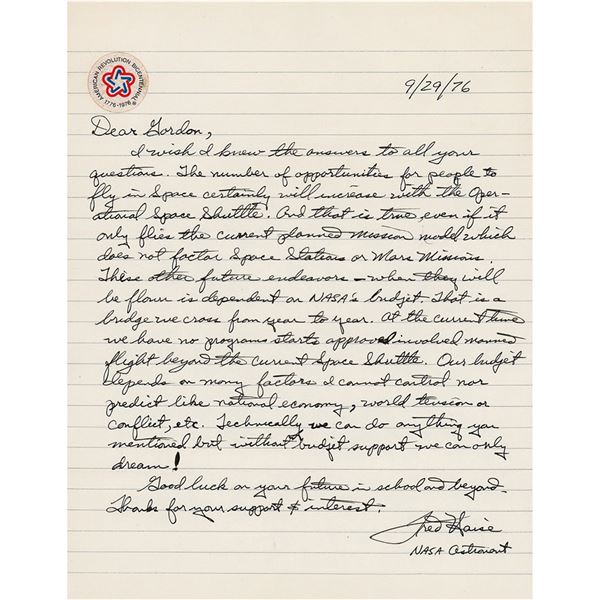 AMERICAN REVOLUTION BICENTENNIAL
1776-1976
9/29/76
Dear Gordon,
I wish I knew the answers to all your
questions. The number of opportunities for people to
fly in Space certainly will increase with the Oper-
ational Space Shuttle. And that is true even if it
only flies the current planned mission model which
does not factor Space Stations or Mars Missions.
These other future endeavors - when they will
be flown is dependent on NASA's budjet. That is a
bridge we cross from year to year. At the current time
we have no programs starts approved involved manned
flight beyond the current Space Shuttle. Our budget
depends on many factors I cannot control nor
predict like national economy, world tension or
conflict, etc. Technically we can do anything you
mentioned but without budjet support we can only
dream!
Good luck on your future in school and beyond.
Thanks for your support & interest.
Fred Haise
NASA Astronaut